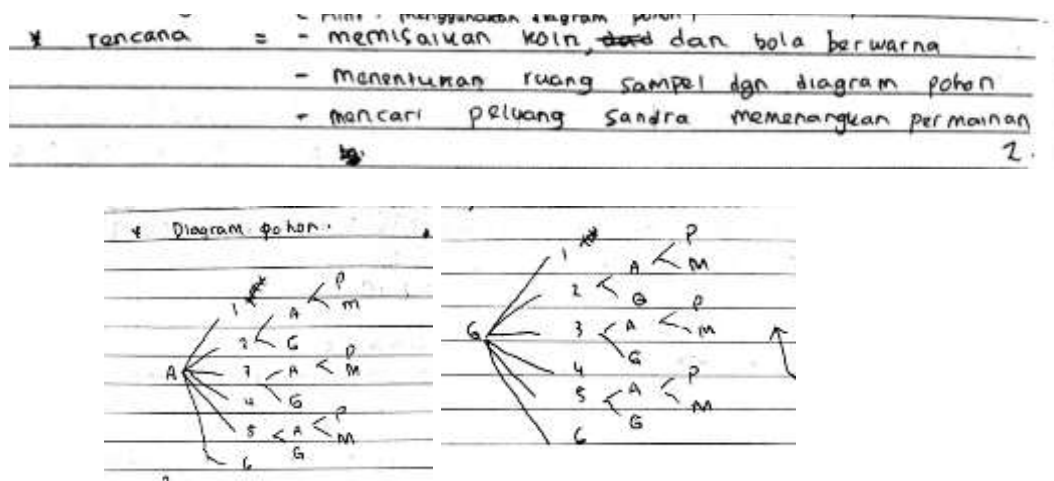 ( Hint : menggunakan diagram pohon )
* rencana = - memisalkan koin, dan bola berwarna
- menentukan ruang sampel dgn diagram pohon
- mencari peluang sandra memenangkan permainan
2.
* Diagram pohon.
A
1
2 A P M
G
3 A P M
4 G
5 A P M
G
6
G
1
2 A P M
G
3 A P M
G
4
5 A P M
G
6